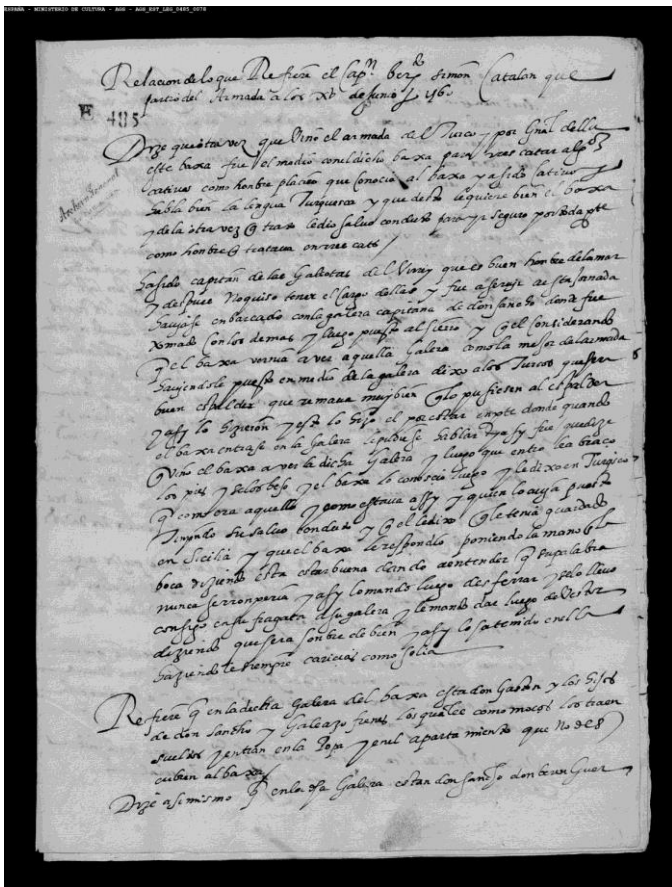 ESPAÑA - MINISTERIO DE CULTURA - AGS - AGS_EST_LEG_0485_0078
Relacion de lo que Refiere el Capn Berdo simon Catalan que
partio del Armada a los xv de Junio 1560
E 485
Dize que otra vez que Vino el armada del Turco y por Gnal della
este baxa fue el medio con el dicho baxa para Rescatar algos
cativos como honbre platico que conocio al baxa y a sido cativo y
habla bien la lengua Turquesca y que desto le quiere bien el baxa
y de la otra vez q trato le dio salvo conduto para yr seguro por toda pte
como honbre q tratava en rrescats /
ha sido capitan de las Galeotas del Virrey que es buen honbre de la mar
y despues No quiso tener el cargo dellas y fue a servir a esta Jornada
haviase enbarcado con la galera capitana de don sancho donde fue
tomado con los demas y luego puesto al Remo y q el considerando
q el baxa vernia a ver aquella Galera como la mejor de la armada
haviendole puesto en medio de la galera dixo a los Turcos que era
buen espalder que remava muy bien q lo pusiesen al espalder
y asy lo hizieron y esto lo hizo el por estar en pte donde quando
el baxa entrase en la Galera le pudiese hablar y asy fue que dize
q vino el baxa a ver la dicha Galera y luego que entro le abraço
los pies y se los beso y el baxa lo conoscio luego y le dixo en Turquesco
q como era aquello y como estava assy y quien lo avia puesto
Tinyendo su salvo conduto y q el le dixo q le tenia guardado
en Sicilia y que el baxa le respondio poniendo la mano en la
boca diziendo esta estar buena dando a entender q su palabra
nunca se rronperia y asy lo mando luego desferrar y se lo llevo
consigo en su fragata a su galera y le mando dar luego de Vestir
diziendo que sera honbre de bien y asy lo ha tenido en ella
haziendole siempre caricias como solia
Refiere q en la dicha Galera del baxa esta don Gaston y los hijos
de don sancho y Galeazo los quales como moços los traen
sueltos y entran en la Popa y en el apartamiento que No des
cubren al baxa
Dize asimismo q en la dha Galera estan don sancho don berenGuer